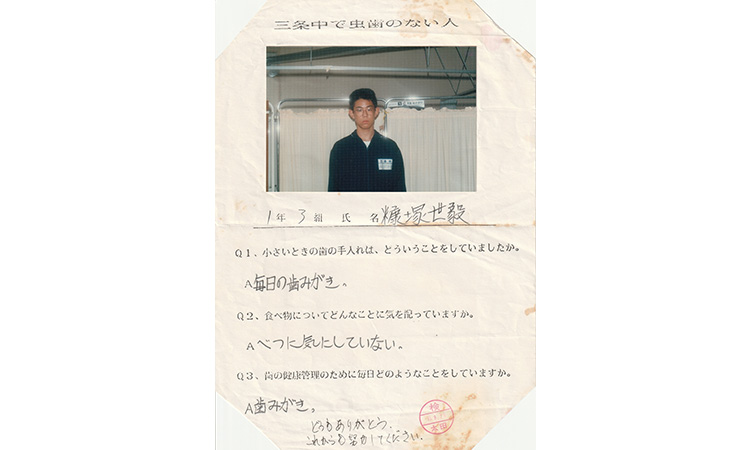 三条中で虫歯のない人
1年 3組 氏 名 糠塚世毅
Q1、小さいときの歯の手入れは、どういうことをしていましたか。
A毎日の歯みがき。
Q2、食べ物についてどんなことに気を配っていますか。
Aべつに気にしていない。
Q3、歯の健康管理のために毎日どのようなことをしていますか。
A歯みがき。
どうもありがとう。
これからも努力してください。
検